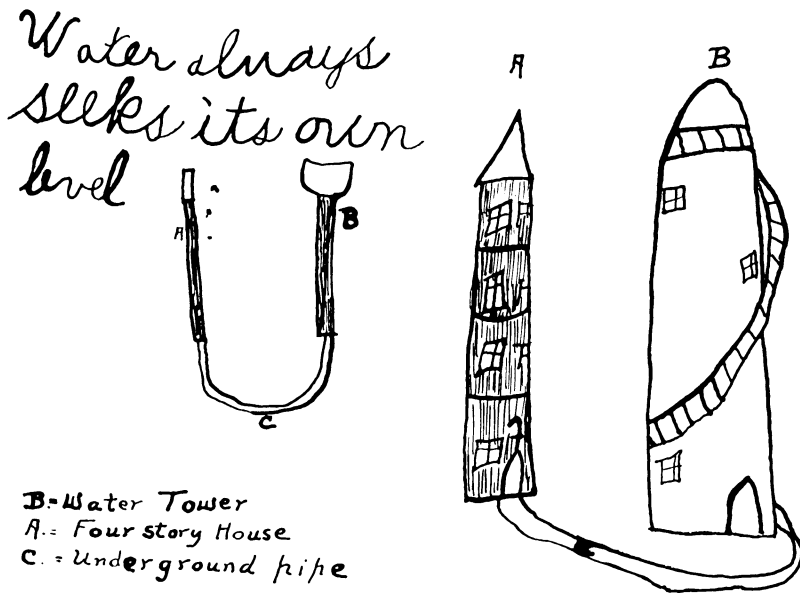 Water always
seeks its own
level
A
B
C
A
B
B.=Water Tower
A.= Four story House
C. = Underground pipe